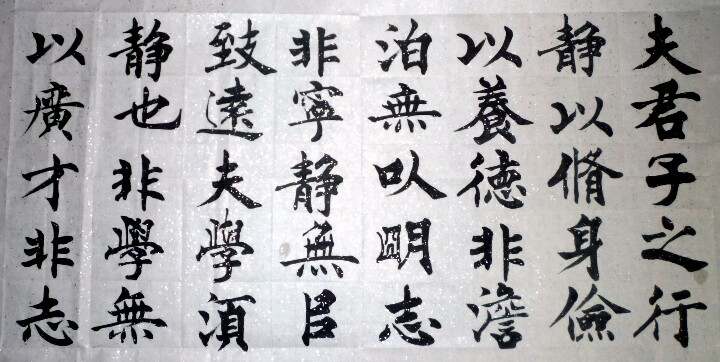 夫君子之行
静以脩身儉
以養德非澹
泊無㕥明志
非寧静無㠯
致遠夫學須
静也非學無
以廣才非志